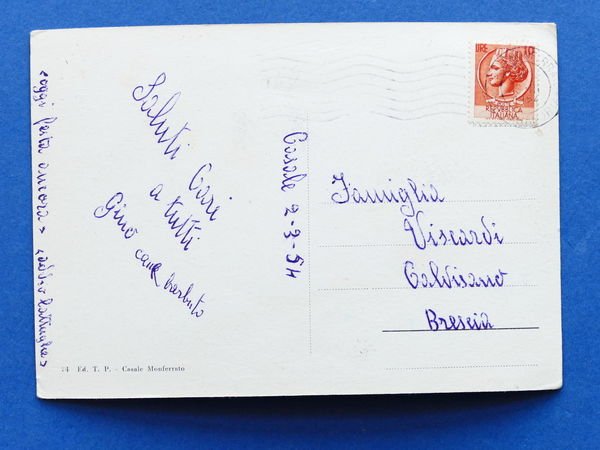 LIRE 10
REPUBBLICA
ITALIANA
Saluti Cari
a tutti
Gino
barbuto
Casale 2-3-54
Famiglia
Viscardi
Calvisano
Brescia
oggi festa ancora
24 Ed. T. P. - Casale Monferrato